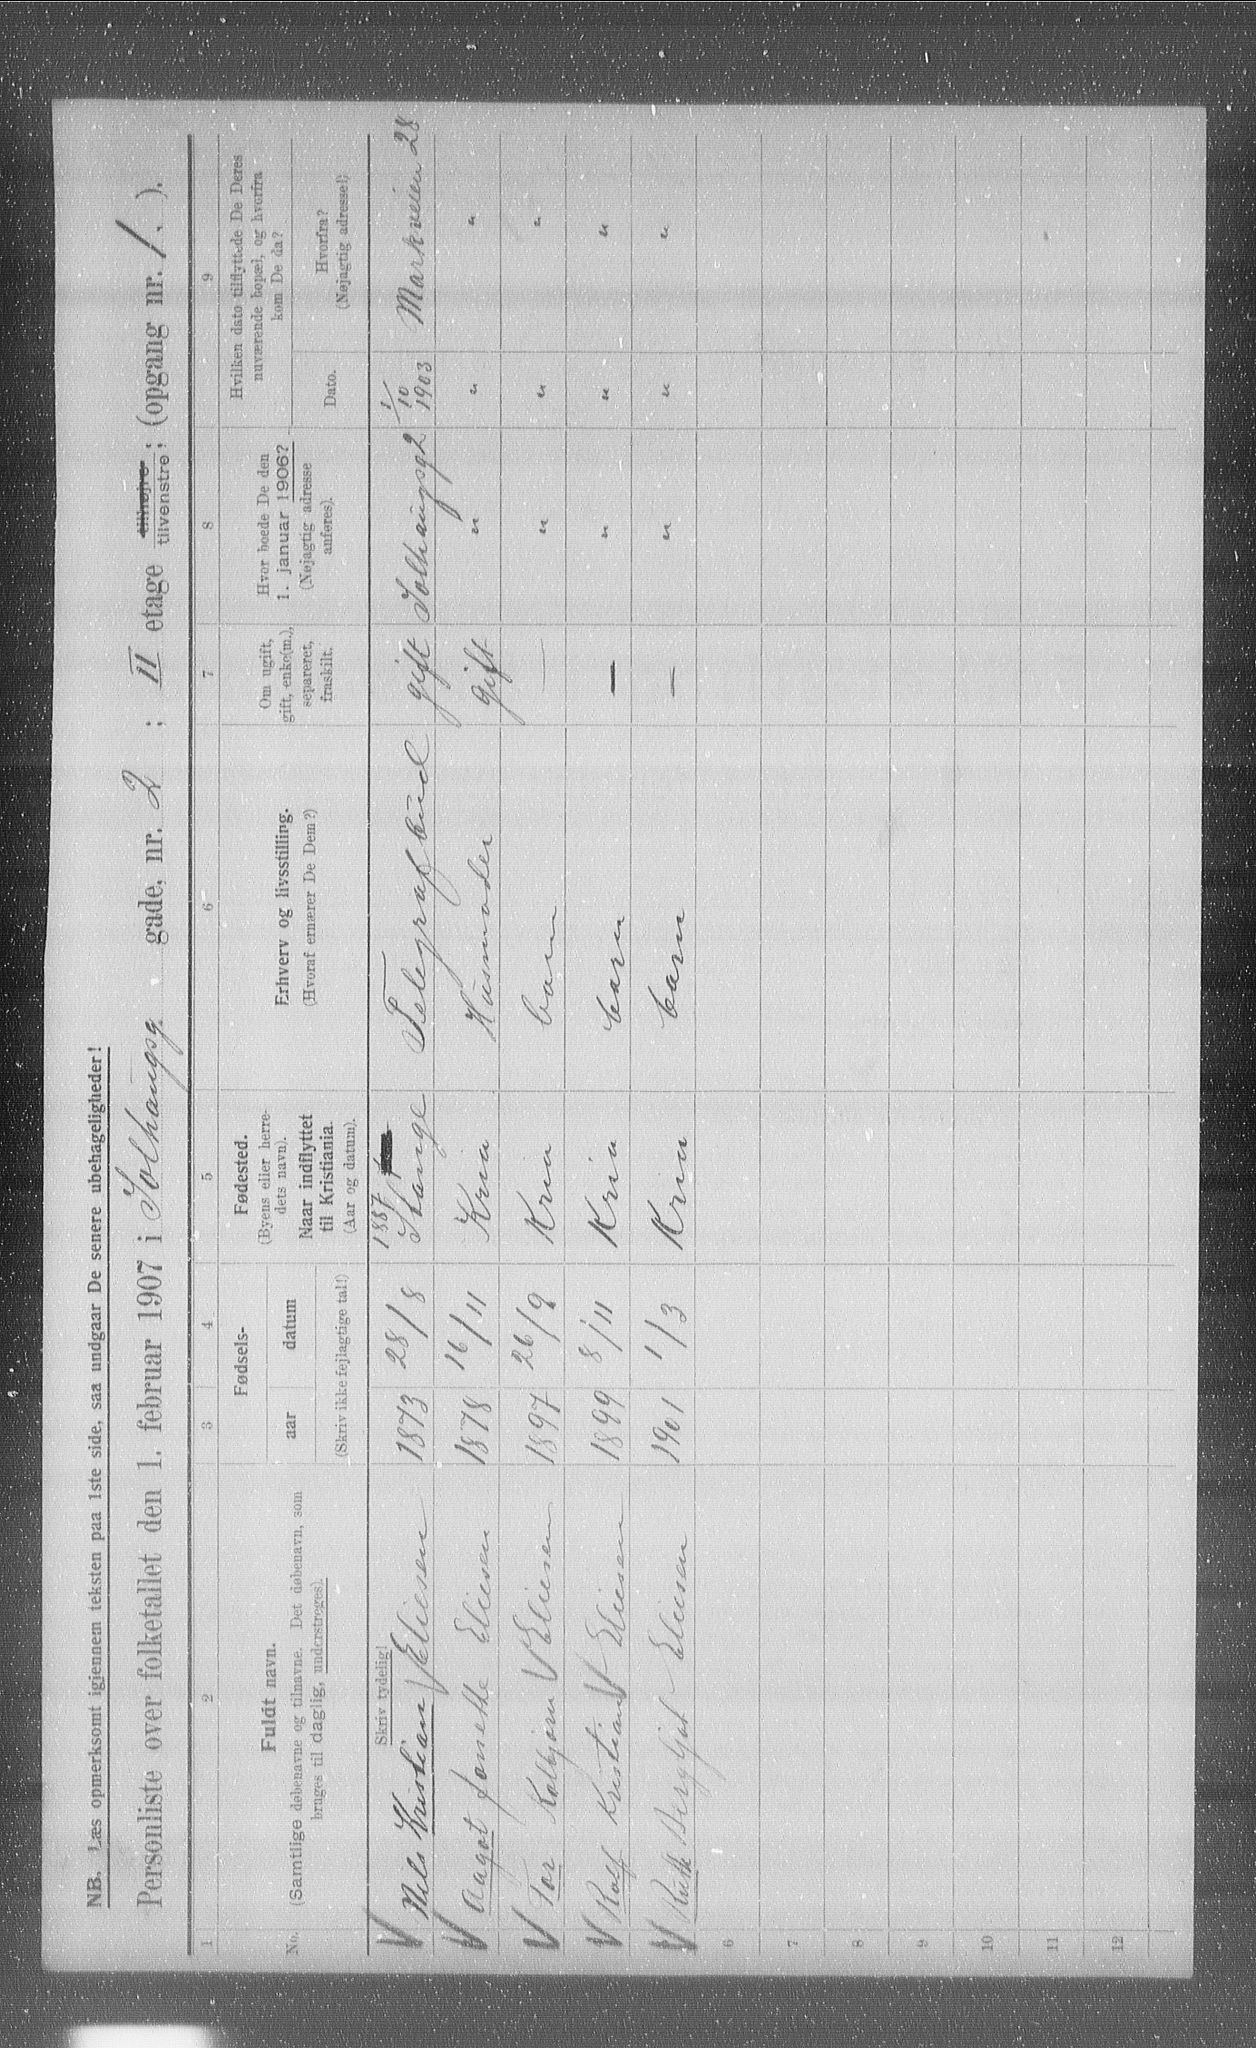 NB. Læs opmerksomt igjennem teksten paa 1ste side, saa undgaar De senere ubehageligheder!
Personliste over folketallet den 1. februar 1907 i Solhaugsg. gade, nr. 2 ; II etage tilhøjre tilvenstre ; (opgang nr. 1. ).
1 2 3 4 5 6 7 8 9
No.
Fuldt navn.
(Samtlige døbenavne og tilnavne. Det døbenavn, som
bruges til daglig, understreges).
Fødsels-
aar datum
(Skriv ikke fejlagtige tal!)
Fødested.
(Byens eller herre-
dets navn).
Naar indflyttet
til Kristiania.
(Aar og datum).
Erhverv og livsstilling.
(Hvoraf ernærer De Dem?)
Om ugift,
gift, enke(m.),
separeret,
fraskilt.
Hvor boede De den
1. januar 1906?
(Nøjagtig adresse
anføres).
Hvilken dato tilflyttede De Deres
nuværende bopæl, og hvorfra
kom De da?
Dato.
Hvorfra?
(Nøjagtig adresse!)
Skriv tydelig!
Nils Kristian Eliesen 1873 28/8 1887 Stange Telegrafbud gift Solhaugsg 2 1/10 1903 Markveien 28
Aagot Jonette Eliesen 1878 16/11 Kria Husmoder gift " " "
Tor Kolbjørn Eliesen 1897 26/9 Kria barn — " " "
Rolf Kristian Eliesen 1899 8/11 Kria barn — " " "
Ruth Bergljot Eliesen 1901 1/3 Kria barn — " " "
6
7
8
9
10
11
12